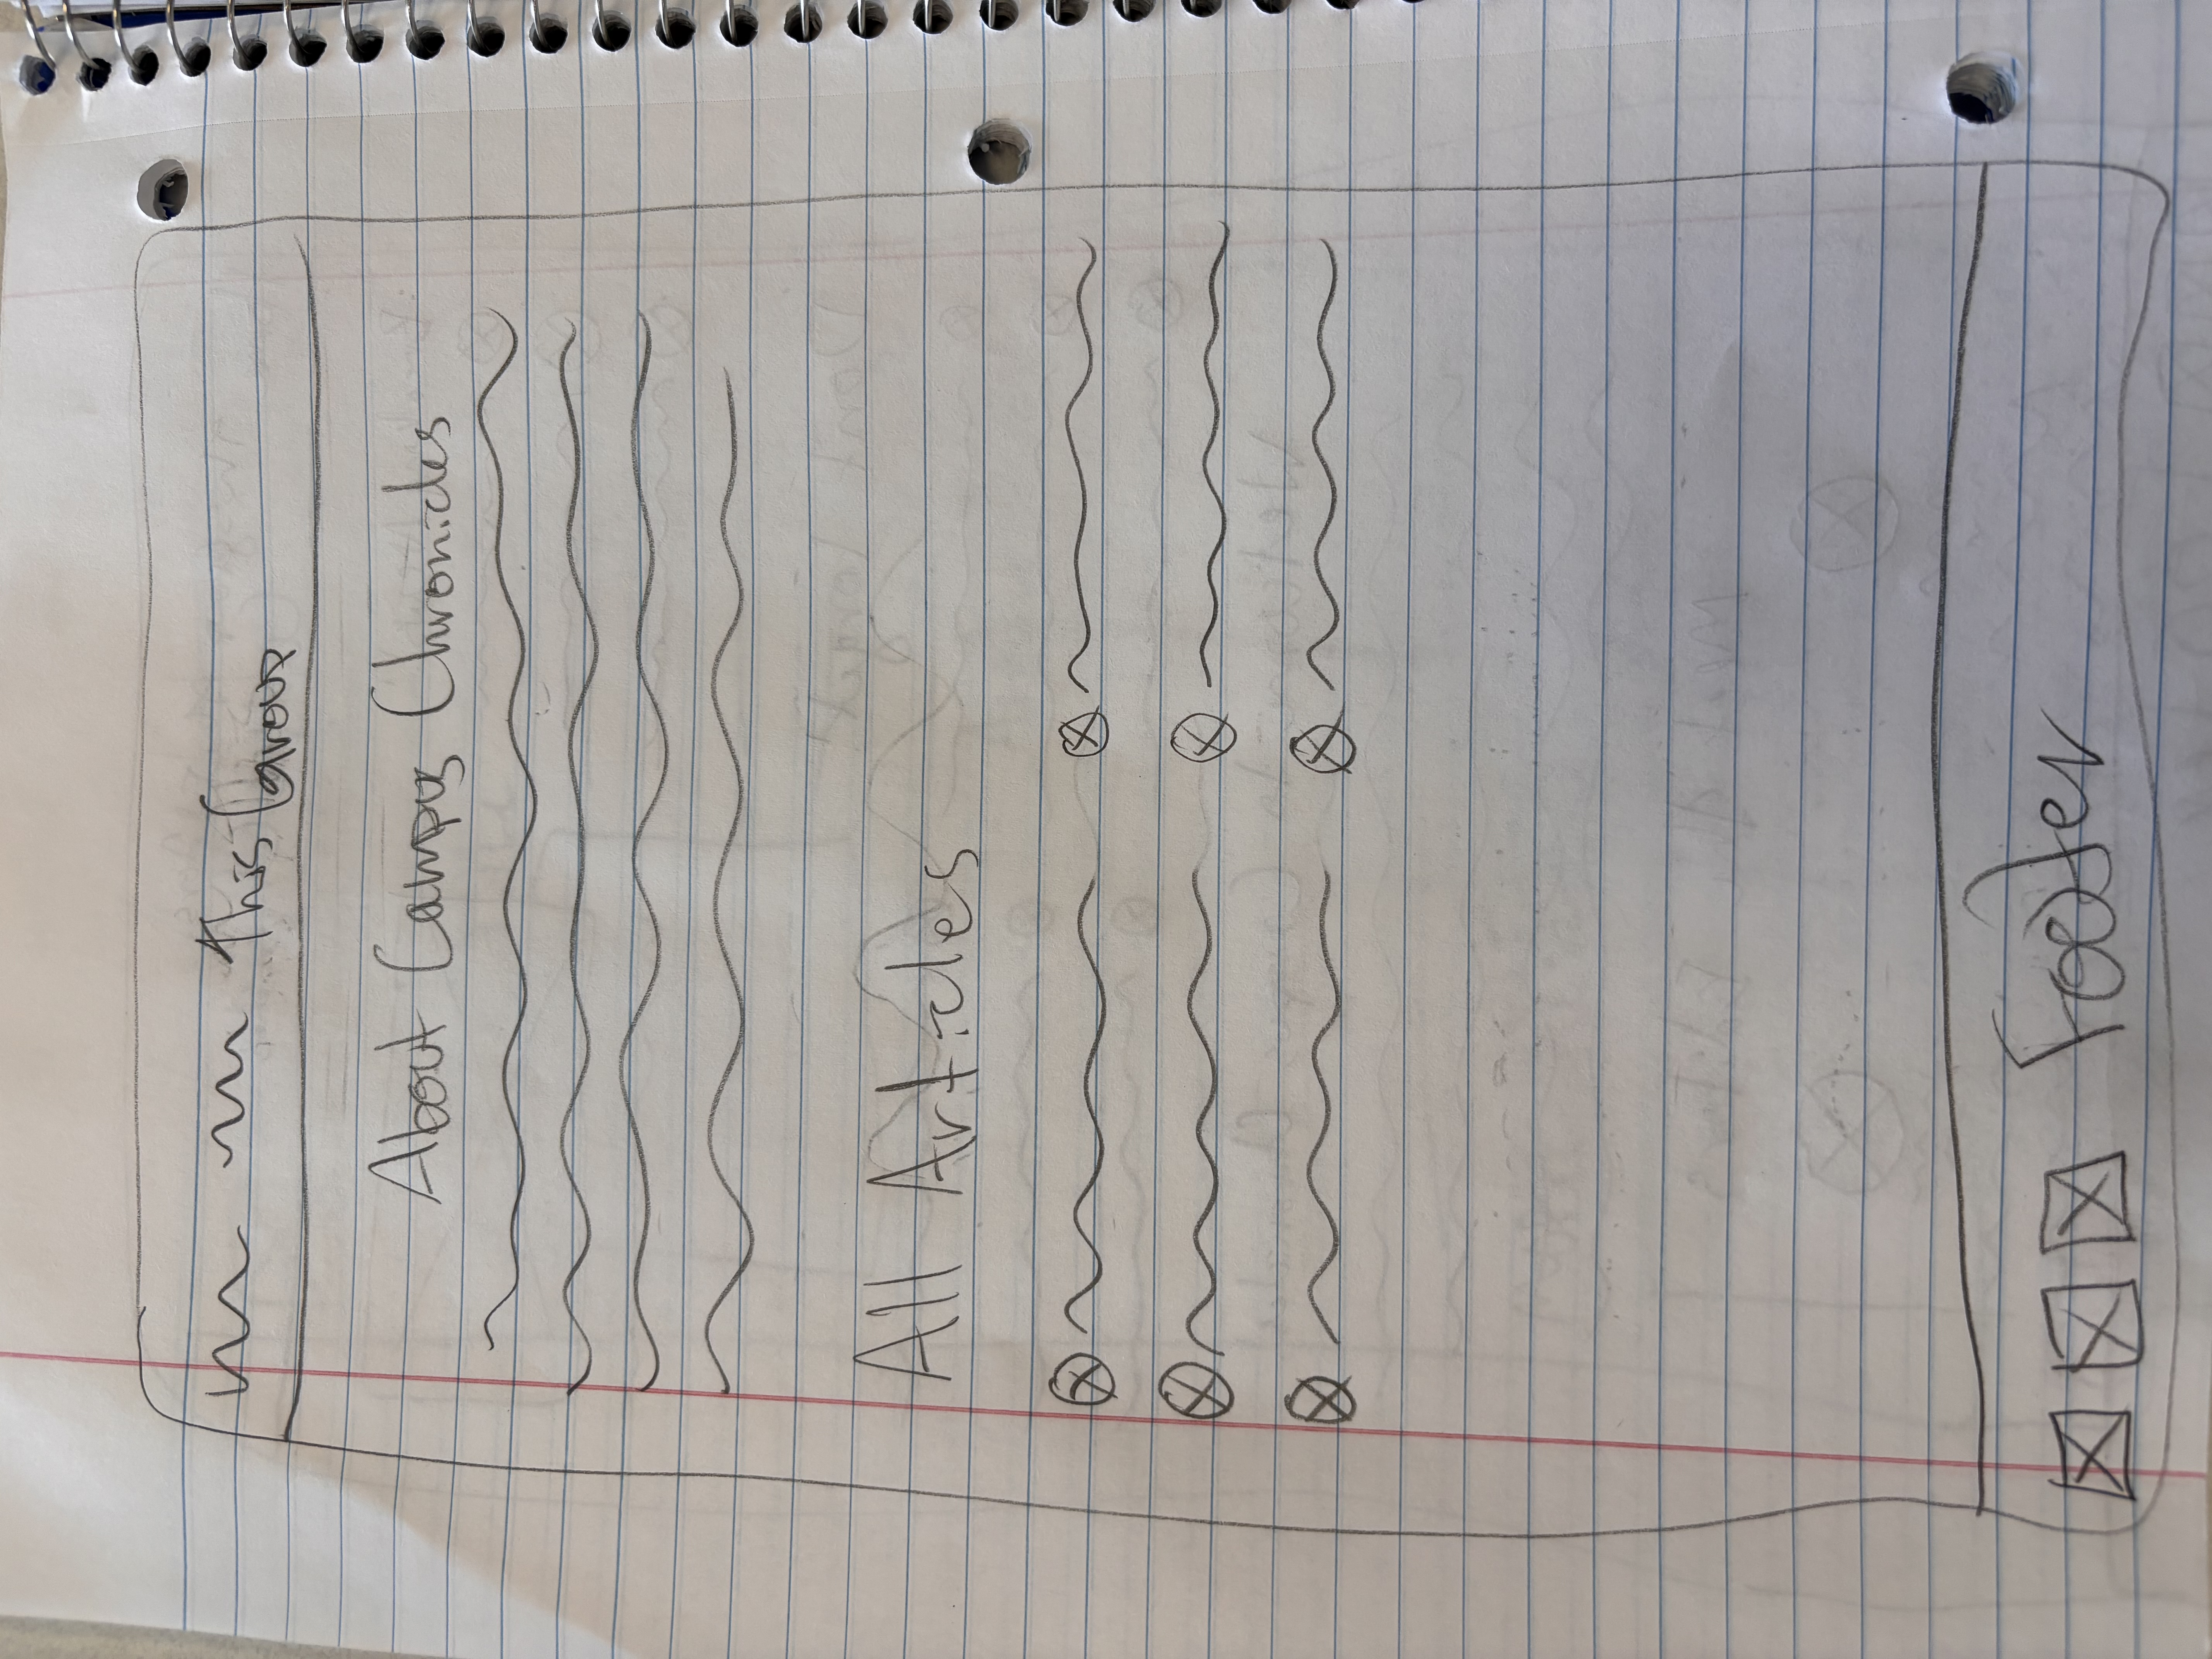 This Group
About Campus Chronicles
All Articles
Footer